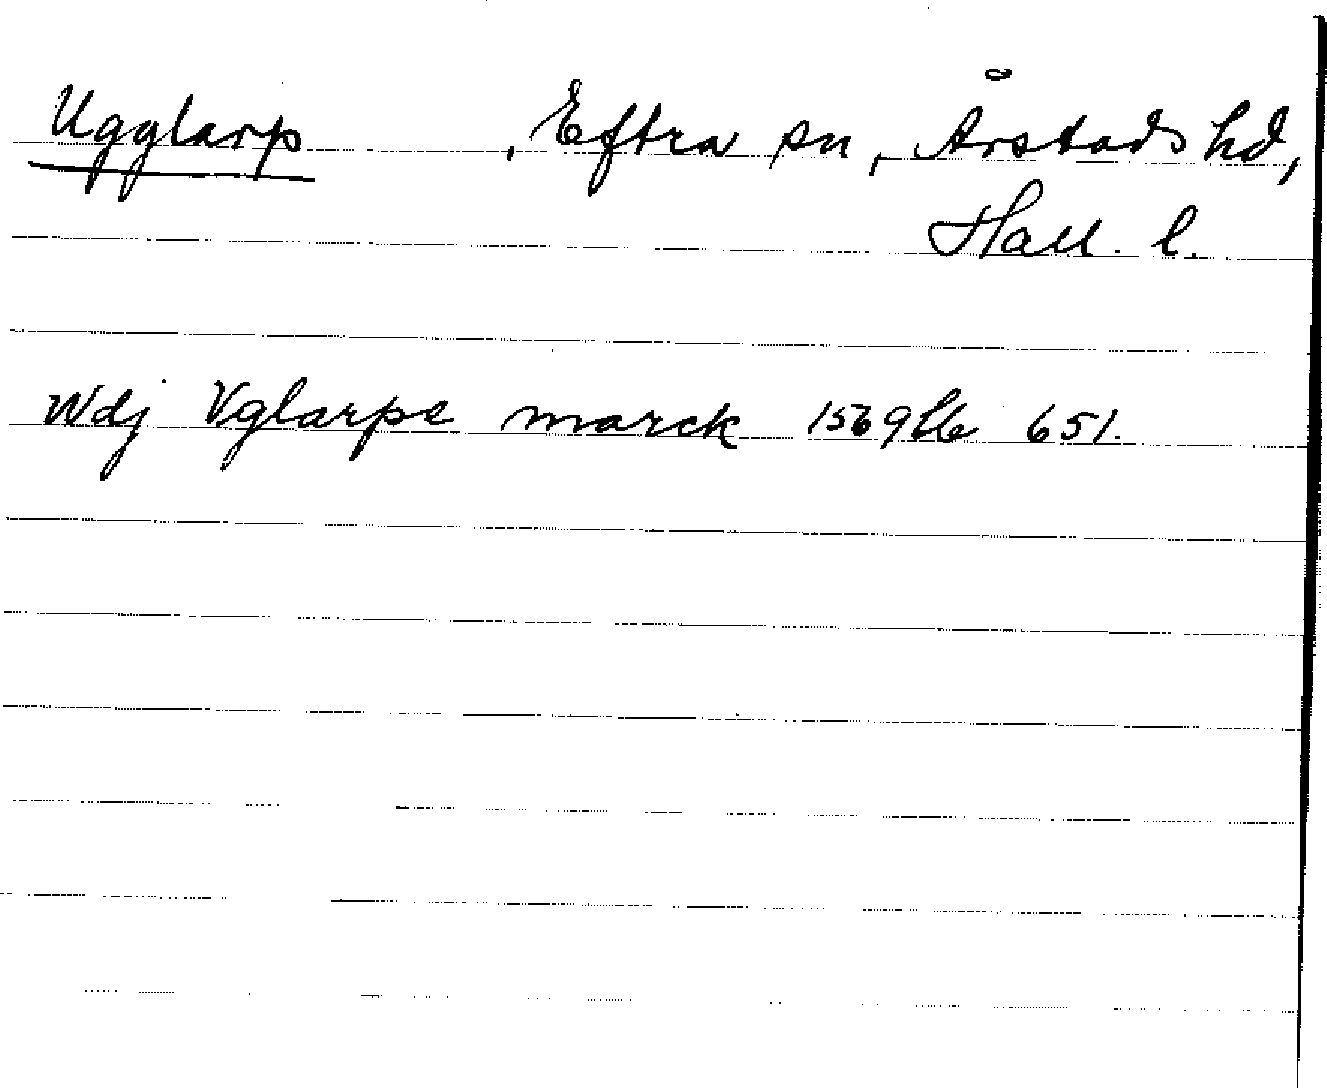 Ugglarp, Eftra sn, Årstads hd,
Hall. l.
Wdj Vglarpe marck 1569 Lb 651.